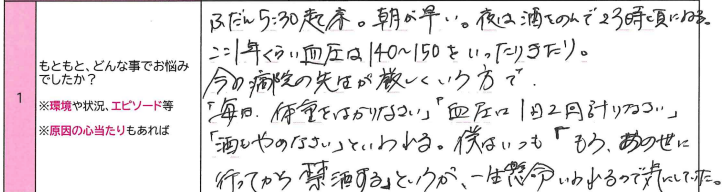 1
もともと、どんな事でお悩み
でしたか？
※環境や状況、エピソード等
※原因の心当たりもあれば
ふだん5:30起床。朝が早い。夜は酒をのんで23時頃にねる。
ここ1年くらい血圧は140〜150をいったりきたり。
今の病院の先生が厳しくいう方で、
「毎日、体重をはかりなさい」「血圧は1日2回計りなさい」
「酒もやめなさい」といわれる。僕はいつも「もう、あのせに
行ってから禁酒する」というが、一生懸命いわれるので気にしていた。